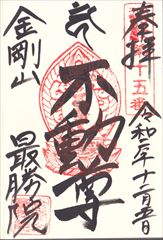 奉拝
十五番
令和二年十二月五日
不動尊
金剛山
最勝院